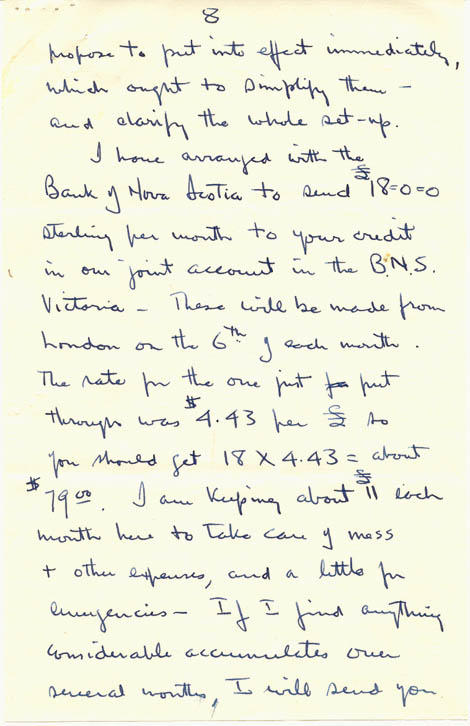 8
propose to put into effect immediately,
which ought to simplify them –
and clarify the whole set-up.
I have arranged with the
Bank of Nova Scotia to send £18=0=0
sterling per month to your credit
in our joint account in the B.N.S.
Victoria – These will be made from
London on the 6th of each month.
The rate for the one just put
through was $4.43 per £ so
you should get 18 X 4.43 = about
$79.00. I am keeping about £11 each
month here to take care of mess
+ other expenses, and a little for
emergencies – If I find anything
considerable accumulates over
several months, I will send you